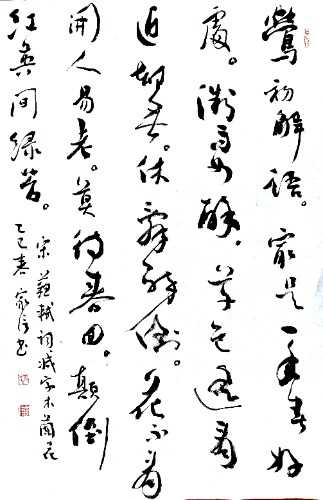 鶯初解語。最是一年春好
處。微雨如酥。草色遥看
近却无。休辞醉倒。花不看
開人易老。莫待春回。顛倒
红英间绿苔。
宋 蘇軾词減字木蘭花
乙巳春 家书